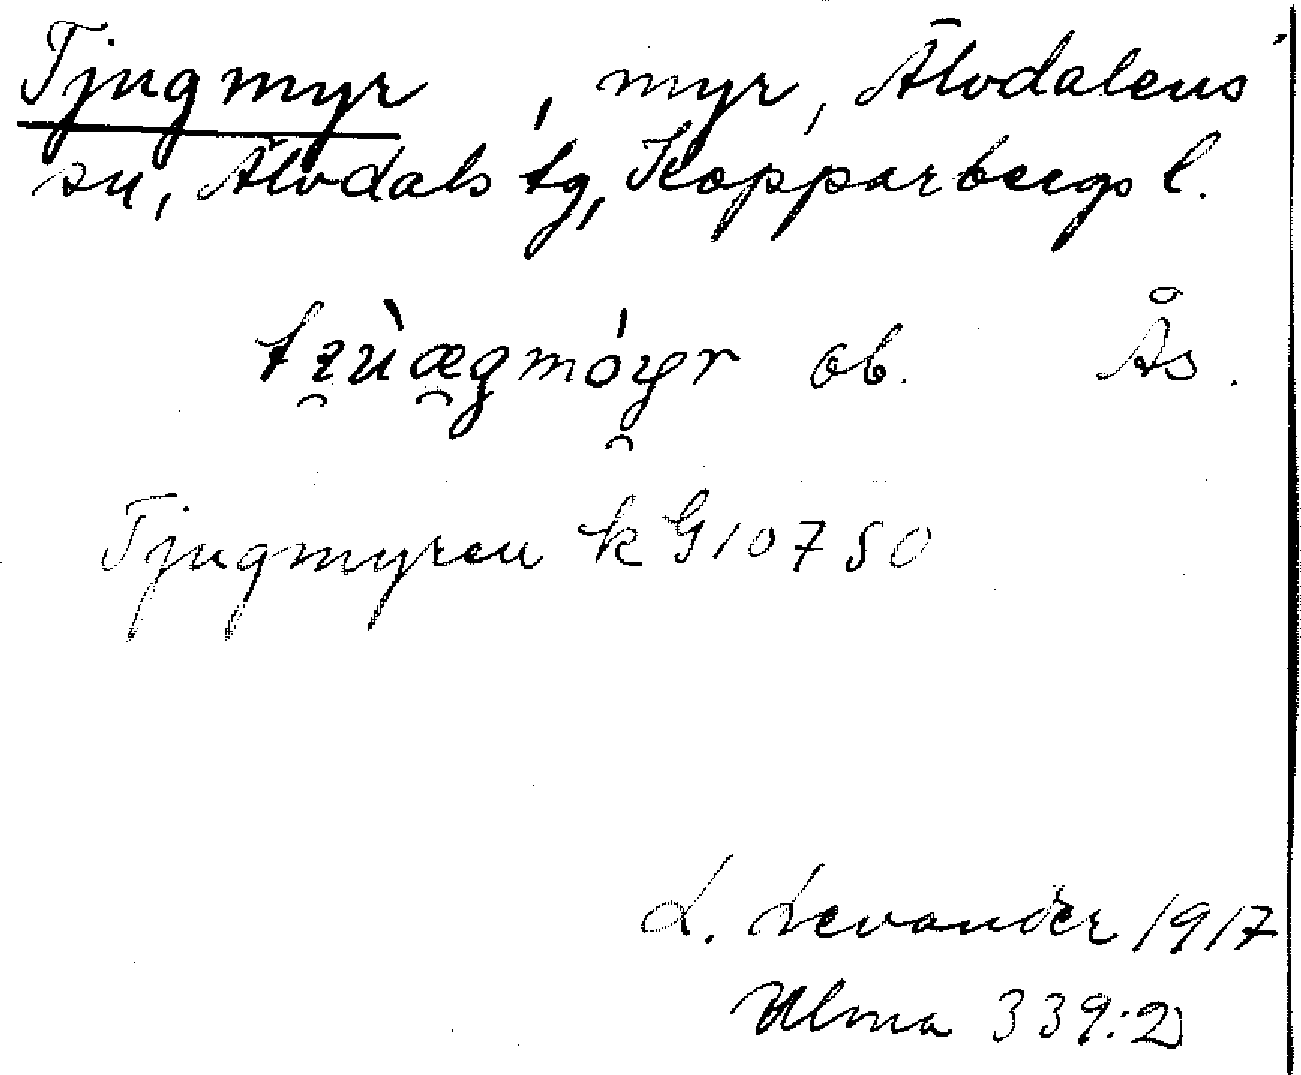 Tjugmyr, myr, Älvdalens
sn, Älvdals tg, Kopparbergs l.
ob. Ås.
Tjugmyren k G 10750
L. Levander 1917
Ulma 339:2